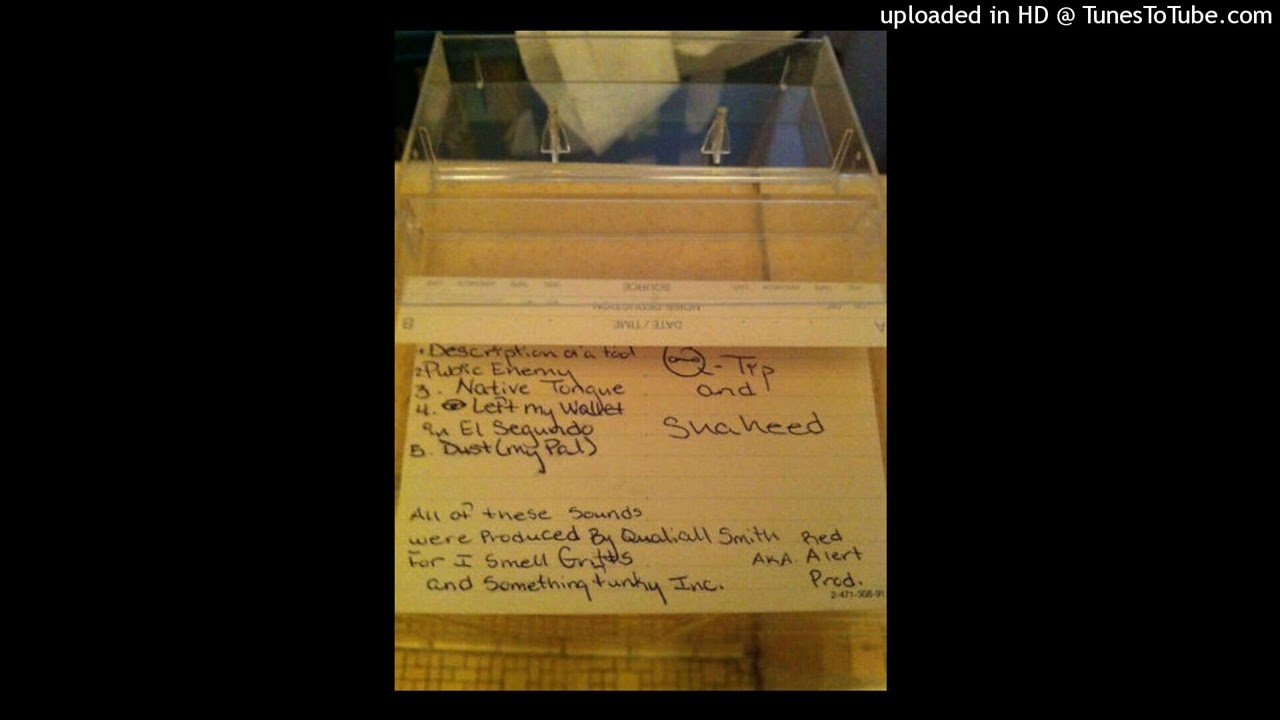 uploaded in HD @ TunesToTube.com
SOURCE
NOISE REDUCTION
B DATE / TIME A
1. Description of a tool
2. Public Enemy
3. Native Tongue
4. Left my Wallet
in El Segundo
5. Dust (my Pal)
Q-Tip
and
Shaheed
All of these Sounds
were Produced By Qualiall Smith
For I Smell Grits
and Something funky Inc.
Red
AKA. Alert
Prod.
2-471-308-91